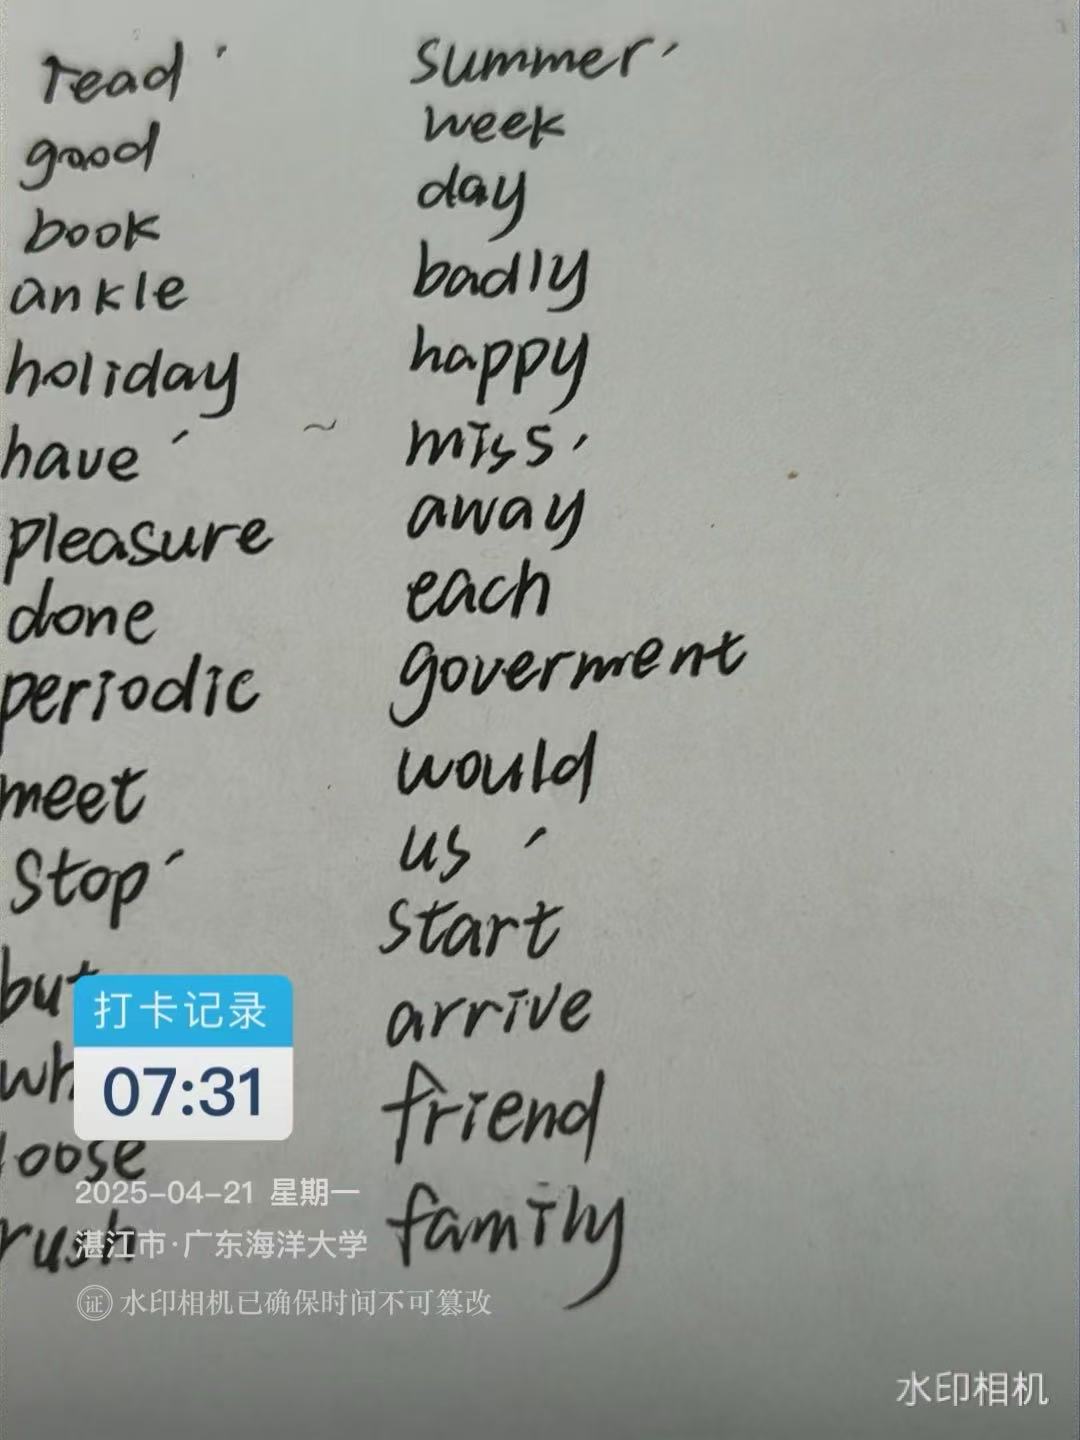 read
good
book
ankle
holiday
have
pleasure
done
periodic
meet
stop
but
loose
rush
summer
week
day
badly
happy
miss
away
each
goverment
would
us
start
arrive
friend
family
打卡记录
07:31
2025-04-21 星期一
湛江市·广东海洋大学
证 水印相机已确保时间不可篡改
水印相机